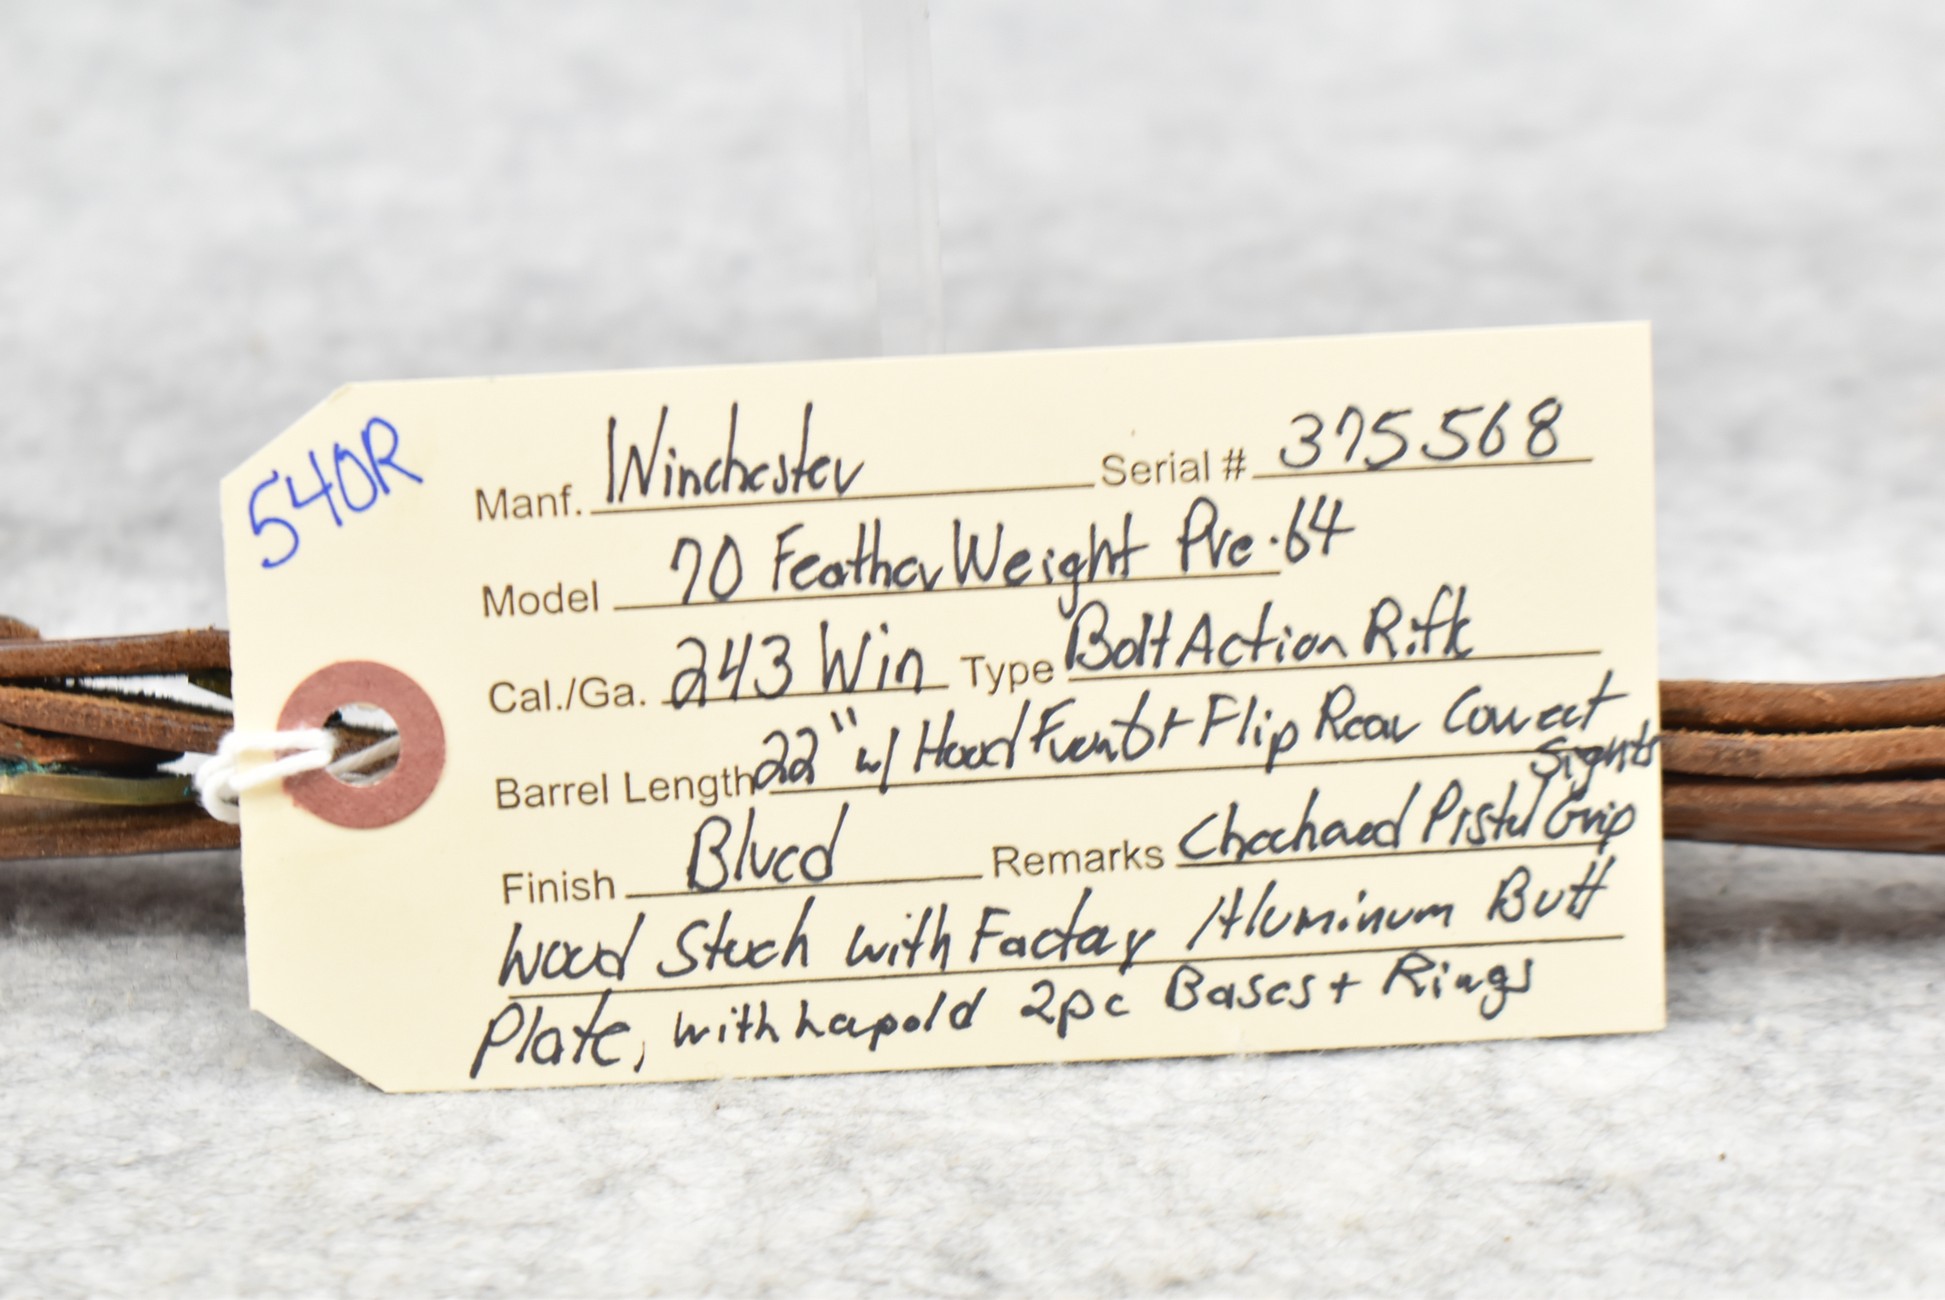 540R
Manf. Winchester Serial # 375568
Model 70 FeatherWeight Pre-64
Cal./Ga. 243 Win Type Bolt Action Rifle
Barrel Length 22" w/ Hood Front + Flip Rear Correct
Sights
Finish Blued Remarks Checkered Pistol Grip
Wood Stock with Factory Aluminum Butt
Plate, with Leupold 2pc Bases + Rings